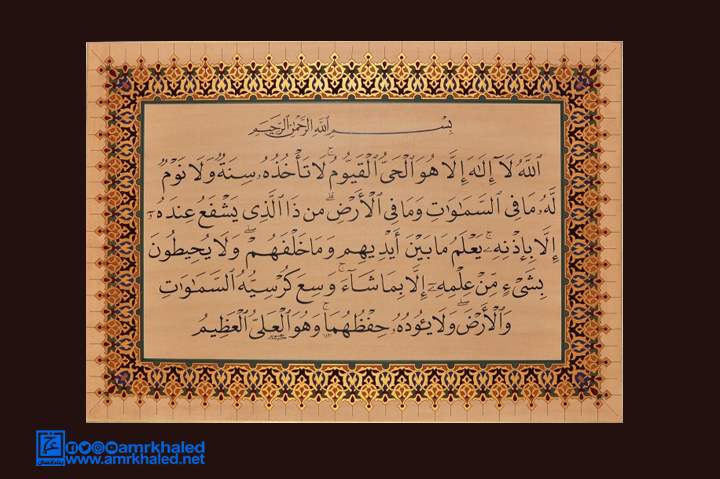 بِسْمِ ٱللَّهِ ٱلرَّحْمَٰنِ ٱلرَّحِيمِ
ٱللَّهُ لَآ إِلَٰهَ إِلَّا هُوَ ٱلْحَىُّ ٱلْقَيُّومُ ۚ لَا تَأْخُذُهُۥ سِنَةٌ وَلَا نَوْمٌ
لَّهُۥ مَا فِى ٱلسَّمَٰوَٰتِ وَمَا فِى ٱلْأَرْضِ ۗ مَن ذَا ٱلَّذِى يَشْفَعُ عِندَهُۥٓ
إِلَّا بِإِذْنِهِۦ ۚ يَعْلَمُ مَا بَيْنَ أَيْدِيهِمْ وَمَا خَلْفَهُمْ ۖ وَلَا يُحِيطُونَ
بِشَىْءٍ مِّنْ عِلْمِهِۦٓ إِلَّا بِمَا شَآءَ ۚ وَسِعَ كُرْسِيُّهُ ٱلسَّمَٰوَٰتِ
وَٱلْأَرْضَ ۖ وَلَا يَـُٔودُهُۥ حِفْظُهُمَا ۚ وَهُوَ ٱلْعَلِىُّ ٱلْعَظِيمُ
amrkhaled
www.amrkhaled.net